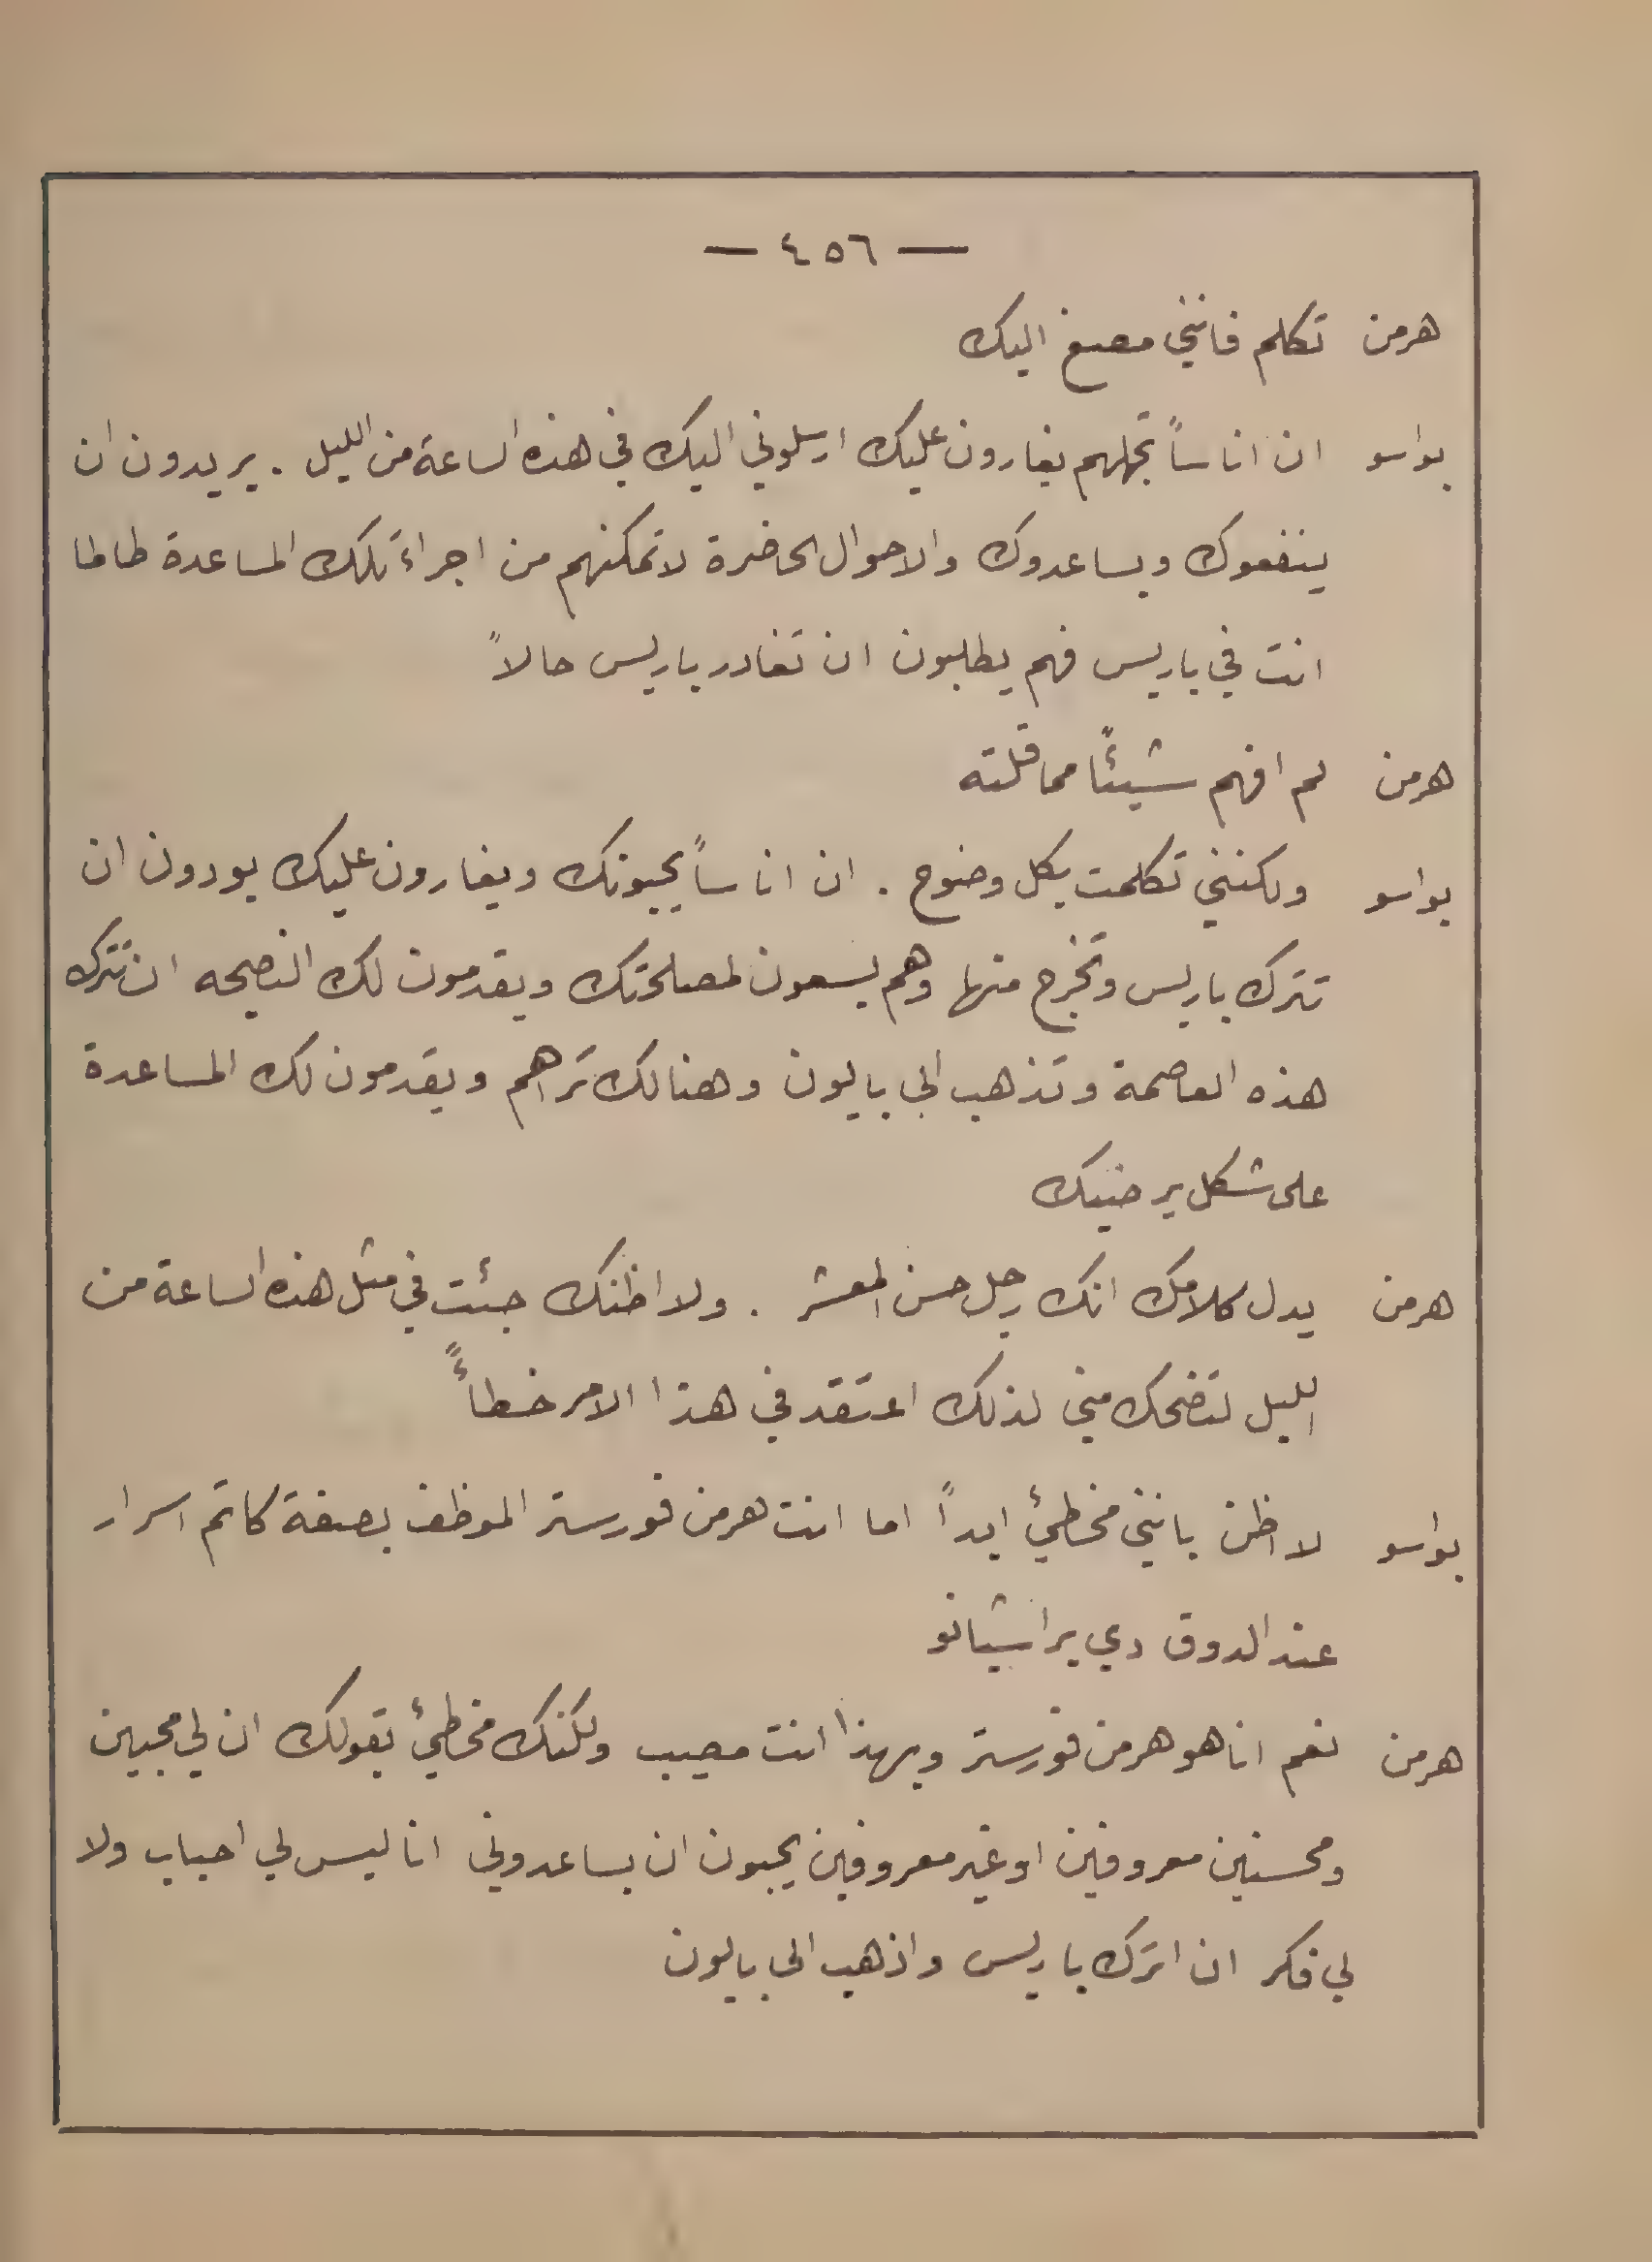 — ٤٥٦ —
هرمن تكلم فانني مصغ اليك
بواسو ان اناساً تجهلهم يغارون عليك ارسلوني اليك في هذه الساعة من الليل . يريدون ان
ينفعوك ويساعدوك والاحوال الحاضرة لا تمكنهم من اجراء تلك المساعدة طالما
انت في باريس فهم يطلبون ان تغادر باريس حالاً
هرمن لم افهم شيئًا مما قلته
بواسو ولكنني تكلمت بكل وضوح . ان اناساً يحبونك ويغارون عليك يودون ان
تترك باريس وتخرج منها وهم يسعون لمصلحتك ويقدمون لك النصيحه ان تترك
هذه العاصمة وتذهب الى بايون وهنالك تراهم ويقدمون لك المساعدة
على شكل يرضيك
هرمن يدل كلامك انك رجل حسن المعشر . ولا اظنك جئت في مثل هذه الساعة من
الليل لتضحك مني لذلك اعتقد في هذا الامر خطأً
بواسو لا اظن بانني مخطئ ابداً اما انت هرمن فورستر الموظف بصفة كاتم اسرار
عند الدوق دي براشيانو
هرمن نعم انا هو هرمن فورستر وبهذا انت مصيب ولكنك مخطئ بقولك ان لي محبين
ومحسنين معروفين او غير معروفين يحبون ان يساعدوني انا ليس لي احباب ولا
لي فكر ان اترك باريس واذهب الى بايون